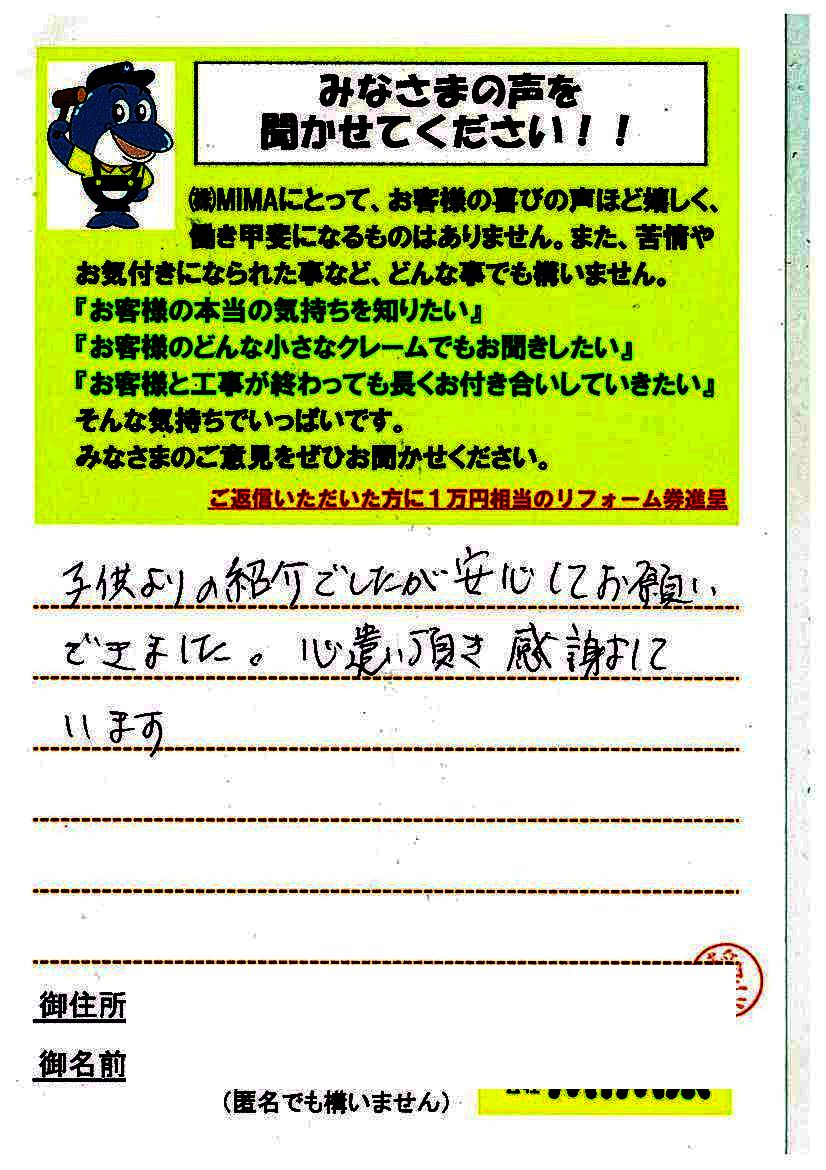 みなさまの声を
聞かせてください!!
㈱MIMAにとって、お客様の喜びの声ほど嬉しく、
働き甲斐になるものはありません。また、苦情や
お気付きになられた事など、どんな事でも構いません。
『お客様の本当の気持ちを知りたい』
『お客様のどんな小さなクレームでもお聞きしたい』
『お客様と工事が終わっても長くお付き合いしていきたい』
そんな気持ちでいっぱいです。
みなさまのご意見をぜひお聞かせください。
ご返信いただいた方に1万円相当のリフォーム券進呈
子供よりの紹介でしたが安心してお願い
できました。心遣い頂き感謝して
います
御住所
御名前
(匿名でも構いません)